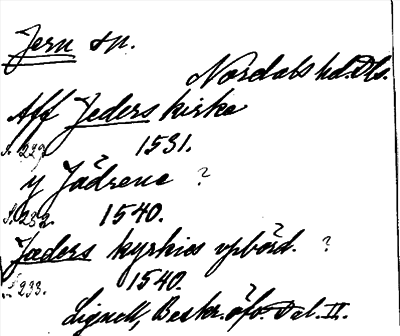 Jern sn.
Nordals hd. Dls.
Aff Jeders kirke
s. 229. 1531.
y Jädrene ?
s. 232. 1540.
Jæders kyrkies vpbörd. ?
s. 233. 1540.
Lignell, Beskr. öfv. Dal. II.